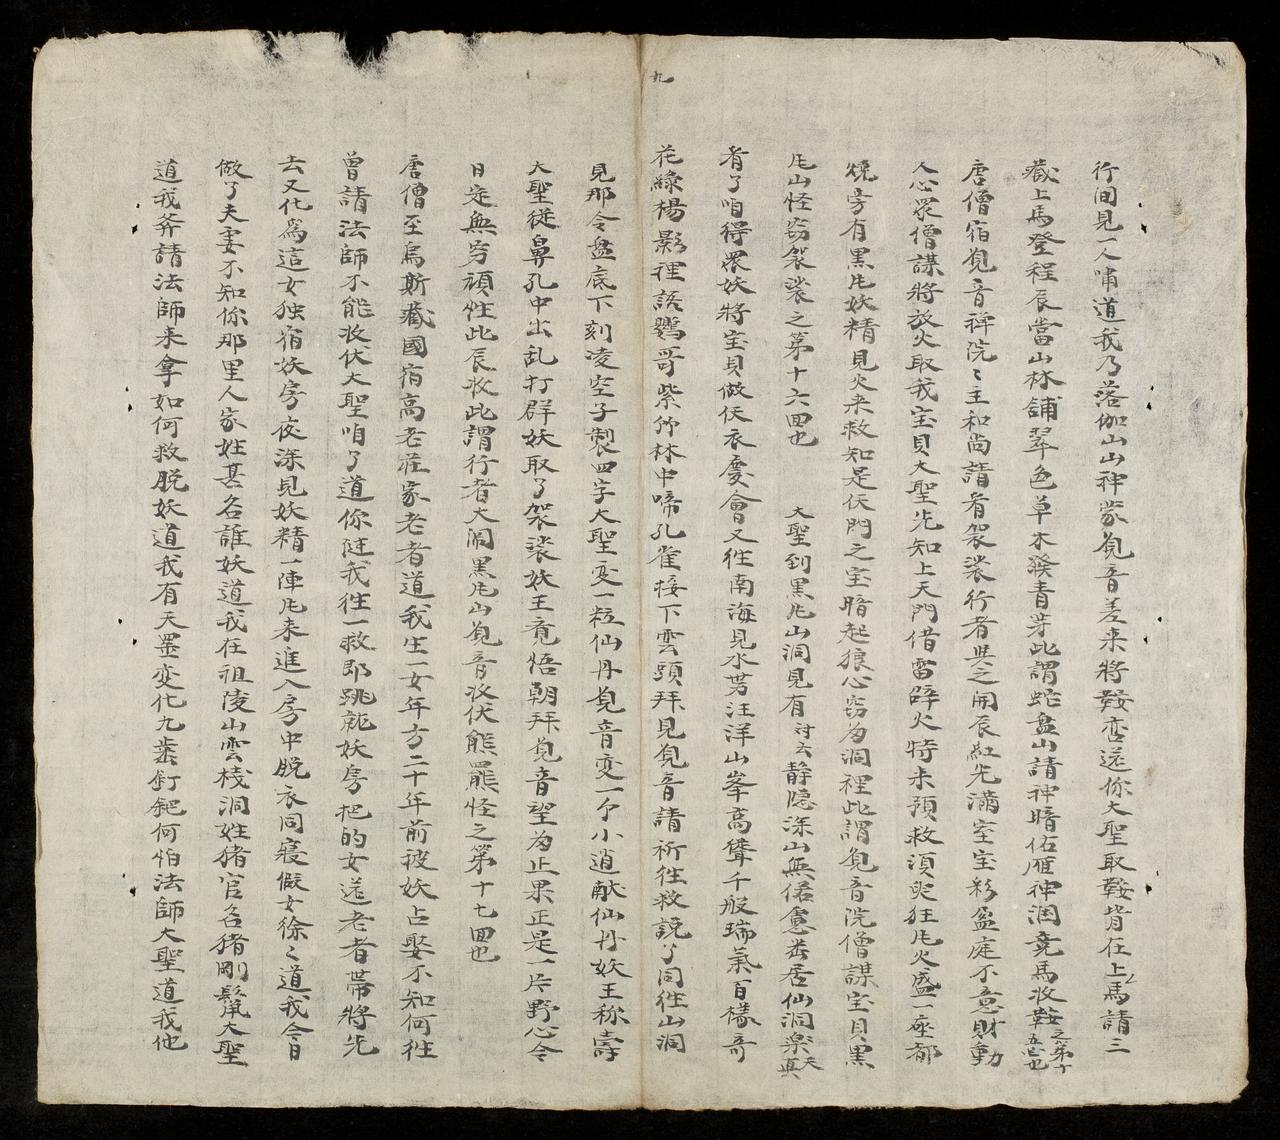 行间見一人嘯道我乃落伽山山神蒙覌音差来將鞍轡送你大聖取鞍背在上馬請三
藏上馬登程辰當山林舖翠色草木發青芽此謂蛇盘山請神暗佑雁神润竟馬收鞍之第十五囬也
唐僧宿覌音禅院〻主和尚請肴袈裟行者與之開辰紅光滿室宝彩盈庭不意財動
人心眾僧謀將放火取我宝貝大聖先知上天門借雷辟火特来預救須臾狂风火盛一座都
燒旁有黑风妖精見火来救知是仸門之宝暗起狼心窃为洞裡此謂覌音院僧謀宝貝黑
风山怪窃袈裟之第十六囬也 大聖到黑风山洞見有对云静隐深山無俗慮㙯居仙洞楽天真
肴了咱得眾妖將宝貝做仸衣慶會又徃南海見水势汪洋山峯高聳千般瑞氣百樣奇
九
花綠楊影裡話鸚哥紫竹林中啼孔雀接下雲頭拜見覌音請祈徃救説了同徃山洞
見那令盘底下刻凌空子製四字大聖变一粒仙丹覌音变一个小道献仙丹妖王称壽
大聖從鼻孔中出乱打群妖取了袈裟妖王竟悟朝拜覌音望为止果正是一片野心令
日定無穷頑性此辰收此謂行者大闹黑风山覌音收伏熊羆怪之第十七囬也
唐僧至烏斯藏國宿高老莊家老者道我生一女年方二十年前被妖占娶不知何徃
曾請法師不能收伏大聖咱了道你陡我徃一救即跳就妖房把的女送老者帶將先
去又化爲這女独宿妖房夜深見妖精一陣风来進入房中脫衣同寢做女徐〻道我今日
做了夫妻不知你那里人家姓甚名誰妖道我在祖陵山雲栈洞姓猪官名猪剛鬣大聖
道我斧請法師来拿如何救脫妖道我有天罡变化九歯釘鈀何怕法師大聖道我他